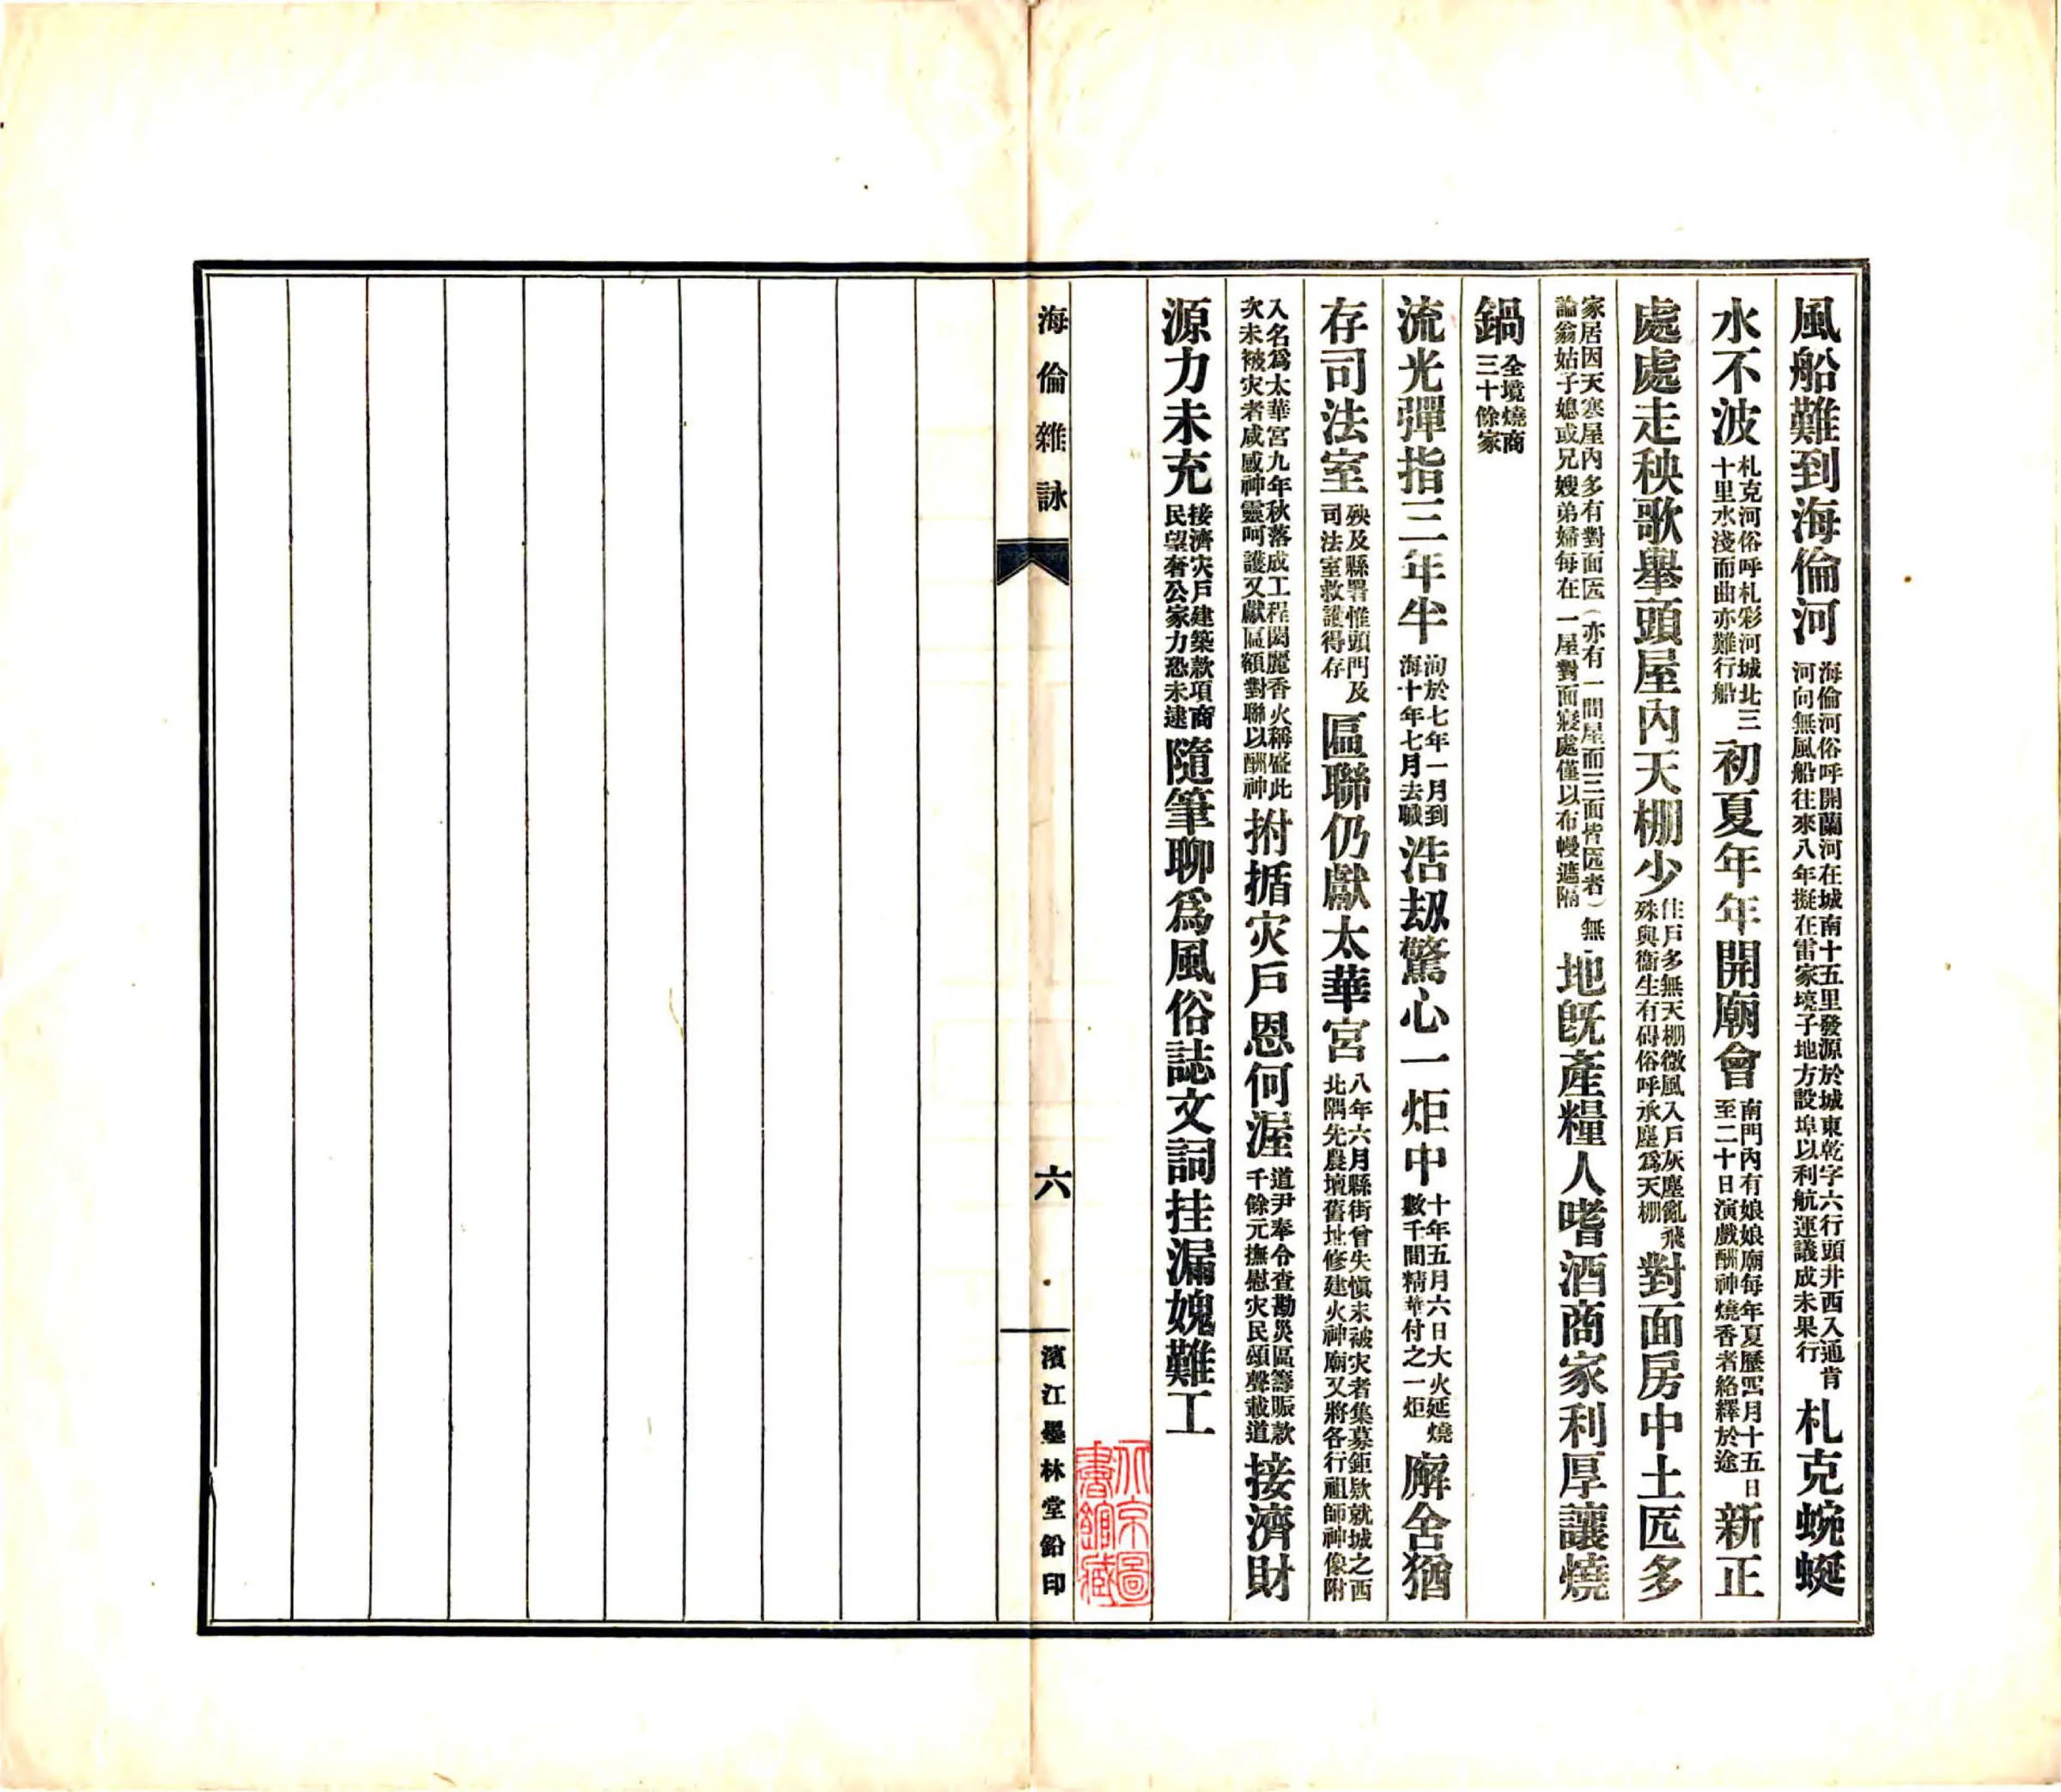 風船難到海倫河海倫河俗呼開蘭河在城南十五里發源於城東乾字六行頭井西入通肯河向無風船往來八年擬在雷家境子地方設埠以利航運議成未果行札克蜿蜒
水不波札克河俗呼札彩河城北三十里水淺而曲亦難行船初夏年年開廟會南門內有娘娘廟每年夏歷四月十五日至二十日演戲酬神燒香者絡繹於途新正
處處走秧歌舉頭屋內天棚少住戶多無天棚微風入戶灰塵亂飛殊與衞生有碍俗呼承塵爲天棚對面房中土匟多
家居因天寒屋內多有對面匟(亦有一間屋而三面皆匟者)無論翁姑子媳或兄嫂弟婦每在一屋對面寢處僅以布幔遮隔地旣產糧人嗜酒商家利厚讓燒
鍋全境燒商三十餘家
流光彈指三年半洵於七年一月到海十年七月去職浩刼驚心一炬中十年五月六日大火延燒數千間精華付之一炬廨舍猶
存司法室殃及縣署惟頭門及司法室救護得存區聯仍獻太華宮八年六月縣街曾失愼未被灾者集募鉅欵就城之西北隅先農壇舊址修建火神廟又將各行祖師神像附
入名爲太華宮九年秋落成工程閎麗香火稱盛此次未被灾者咸感神靈呵護又獻區額對聯以酬神拊循灾戶恩何渥道尹奉令查勘災區籌賑款千餘元撫慰灾民頌聲載道接濟財
源力未充接濟灾戶建築款項商民望奢公家力恐未逮隨筆聊爲風俗誌文詞挂漏媿難工
海倫雜詠
六
濱江墨林堂鉛印
北京圖
書館藏